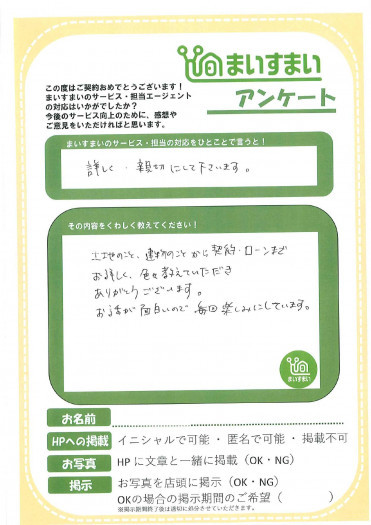 まいすまい
アンケート
この度はご契約おめでとうございます！
まいすまいのサービス・担当エージェント
の対応はいかがでしたか？
今後のサービス向上のために、感想や
ご意見をいただければと思います。
まいすまいのサービス・担当の対応をひとことで言うと！
詳しく・親切にして下さいます。
その内容をくわしく教えてください！
土地のこと、建物のことから契約・ローンまで
お詳しく、色々教えていただき
ありがとうございます。
お話が面白いので毎回楽しみにしています。
まいすまい
お名前
HPへの掲載 イニシャルで可能・匿名で可能・掲載不可
お写真 HPに文章と一緒に掲載（OK・NG）
掲示 お写真を店頭に掲示（OK・NG）
OKの場合の掲示期間のご希望（　　）
※掲示期間終了後は適切に処分させていただきます。